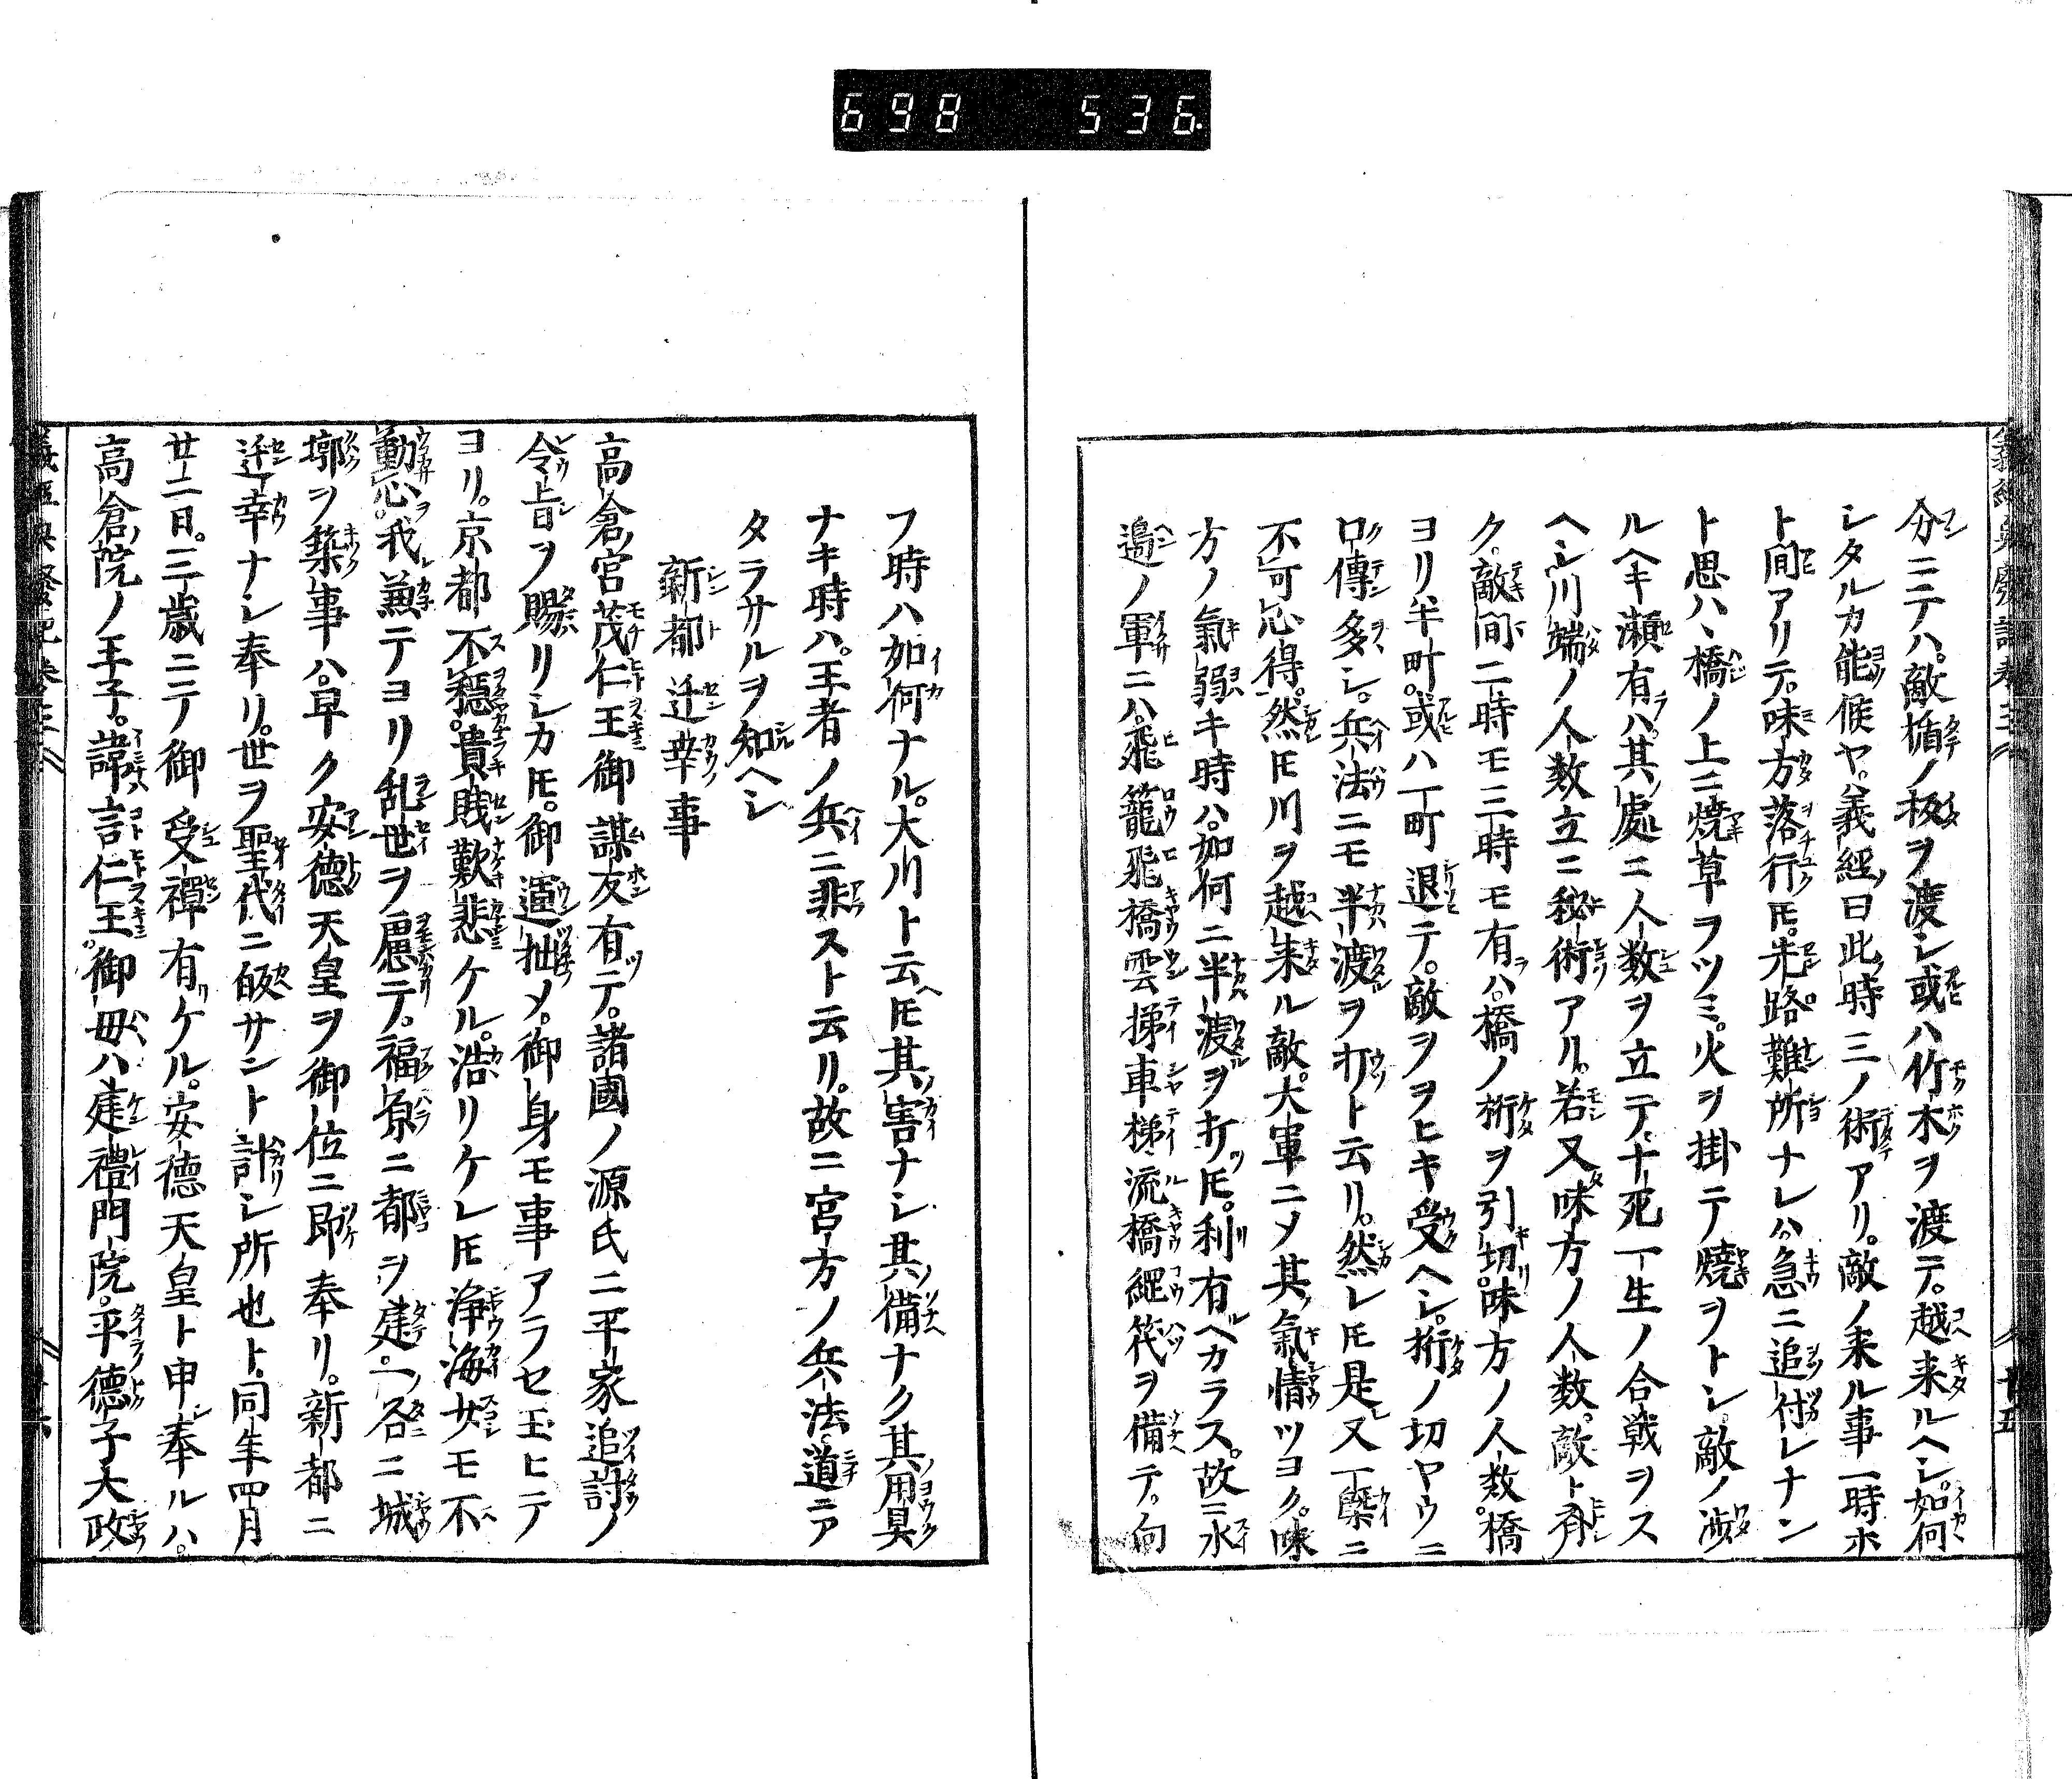 698 536
分ニテハ。敵楯ノ板ヲ渡シ或ハ竹木ヲ渡テ。越来ルヘシ。如何
シタルカ能候ヤ。義經曰此時三ノ術アリ。敵ノ来ル事一時ホ
ト間アリテ。味方落行𪜈。先路難所ナレハ。急ニ追付レナン
ト思ハヽ橋ノ上ニ焼草ヲツミ。火ヲ掛テ焼ヲトシ。敵ノ渉
ルヘキ瀬有ハ。其處ニ人数ヲ立テ。十死一生ノ合戦ヲス
ヘシ川端ノ人数立ニ秘術アリ。若又味方ノ人数。敵ト斉
ク。敵間二時モ三時モ有ハ。橋ノ桁ヲ引切。味方ノ人数。橋
ヨリ半町。或ハ一町退テ。敵ヲヲヒキ受ヘシ。桁ノ切ヤウニ
口傳多シ。兵法ニモ半渡ヲ打ト云リ。然レ𪜈是又一槩ニ
不可心得。然𪜈川ヲ越来ル敵。大軍ニメ其氣情ツヨク。味
方ノ氣弱キ時ハ。如何ニ半渡ヲ打𪜈。利有ヘカラス。故ニ水
邉ノ軍ニハ。飛籠飛橋雲梯車梯流橋縆筏ヲ備テ。向
フ時ハ如何ナル。大川ト云𪜈其害ナシ其備ナク其用具
ナキ時ハ。王者ノ兵ニ非スト云リ。故ニ宮方ノ兵法道ニア
タラサルヲ知ヘシ
新都迁幸事
高倉宮茂仁王御謀友有テ。諸國ノ源氏ニ平家追討ノ
令旨ヲ賜リシカ𪜈。御運拙メ。御身モ事アラセ玉ヒテ
ヨリ。京都不穏。貴賤歎悲ケル。浩リケレ𪜈浄海少モ不
動心。我兼テヨリ乱世ヲ慮テ。福原ニ都ヲ建。一ノ谷ニ城
墎ヲ築事ハ。早ク安德天皇ヲ御位ニ即奉リ。新都ニ
迁幸ナシ奉リ。世ヲ聖代ニ皈サント計シ所也ト。同年四月
廿二日。三歳ニテ御受禪有ケル。安德天皇ト申奉ルハ。
高倉院ノ王子。諱言仁王。御母ハ建禮門院。平德子大政